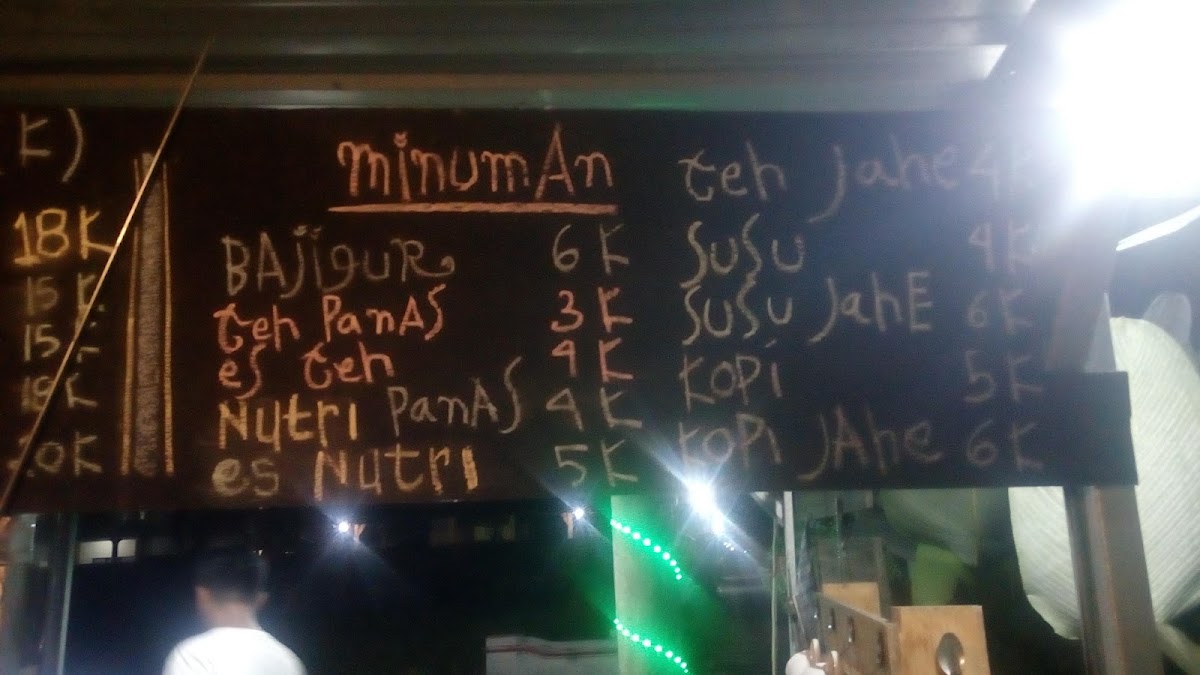 K)
18K
15K
15K
18K
20K
minumAn
BAjigUR 6K
teh PanAS 3K
es teh 4K
NUtRI PanAS 4K
es NUtRI 5K
teh jahe 4K
SUSU 4K
SUSU JahE 6K
KOPi 5K
KOPi JAhe 6K